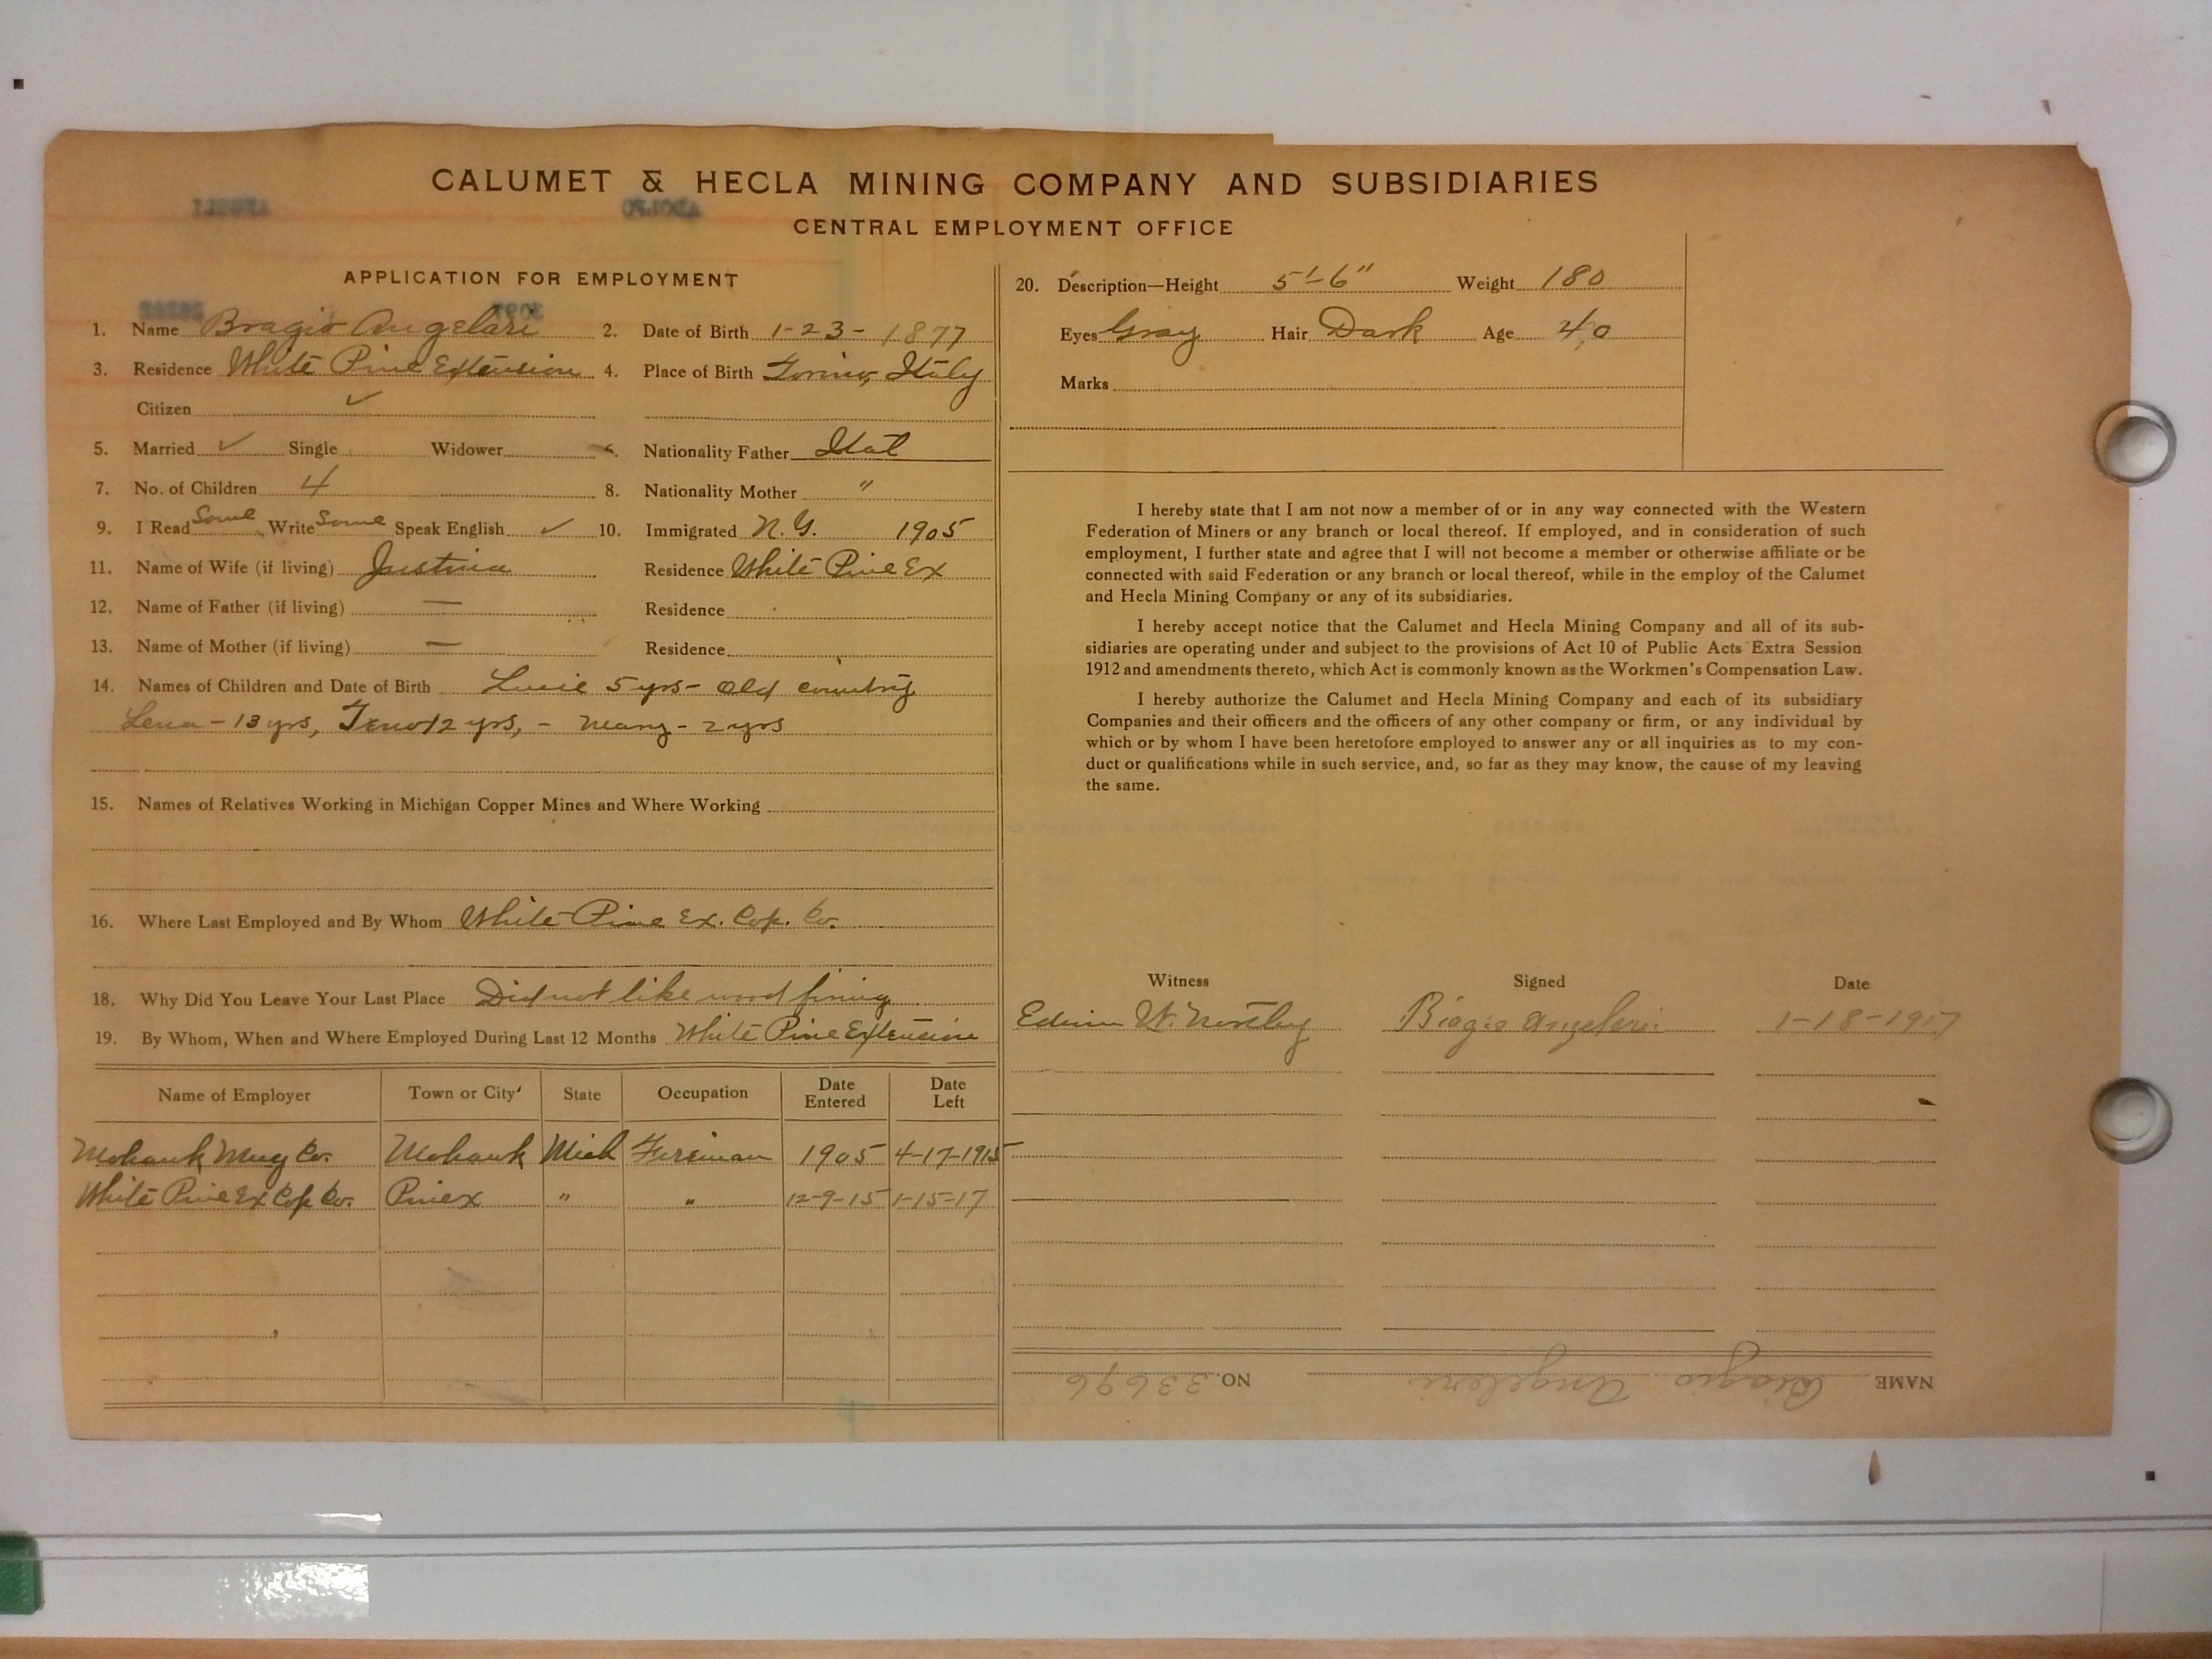 CALUMET & HECLA MINING COMPANY AND SUBSIDIARIES
CENTRAL EMPLOYMENT OFFICE
APPLICATION FOR EMPLOYMENT
1. Name Bragio Angelari 2. Date of Birth 1-23-1877
3. Residence White Pine Extension 4. Place of Birth Torino, Italy
Citizen ✓
5. Married ✓ Single Widower 6. Nationality Father Ital
7. No. of Children 4 8. Nationality Mother "
9. I Read Some Write Some Speak English ✓ 10. Immigrated N.Y. 1905
11. Name of Wife (if living) Justina Residence White Pine Ex
12. Name of Father (if living) — Residence
13. Name of Mother (if living) — Residence
14. Names of Children and Date of Birth Lucie 5 yrs - Old country
Lena - 13 yrs, 12 yrs, - Mary - 2 yrs
15. Names of Relatives Working in Michigan Copper Mines and Where Working
16. Where Last Employed and By Whom White Pine Ex. Cop. Co.
18. Why Did You Leave Your Last Place Did not like wood firing
19. By Whom, When and Where Employed During Last 12 Months White Pine Extension
Name of Employer Town or City State Occupation Date Entered Date Left
Mohawk Mng Co. Mohawk Mich Fireman 1905 4-17-1915
White Pine Ex Cop Co. Pinex " " 12-9-15 1-15-17
20. Description—Height 5'-6" Weight 180
Eyes Gray Hair Dark Age 40
Marks
I hereby state that I am not now a member of or in any way connected with the Western
Federation of Miners or any branch or local thereof. If employed, and in consideration of such
employment, I further state and agree that I will not become a member or otherwise affiliate or be
connected with said Federation or any branch or local thereof, while in the employ of the Calumet
and Hecla Mining Company or any of its subsidiaries.
I hereby accept notice that the Calumet and Hecla Mining Company and all of its sub-
sidiaries are operating under and subject to the provisions of Act 10 of Public Acts Extra Session
1912 and amendments thereto, which Act is commonly known as the Workmen's Compensation Law.
I hereby authorize the Calumet and Hecla Mining Company and each of its subsidiary
Companies and their officers and the officers of any other company or firm, or any individual by
which or by whom I have been heretofore employed to answer any or all inquiries as to my con-
duct or qualifications while in such service, and, so far as they may know, the cause of my leaving
the same.
Witness Signed Date
Edwin W. Biagio Angeleri 1-18-1917
NAME Biagio Angeleri NO. 33696